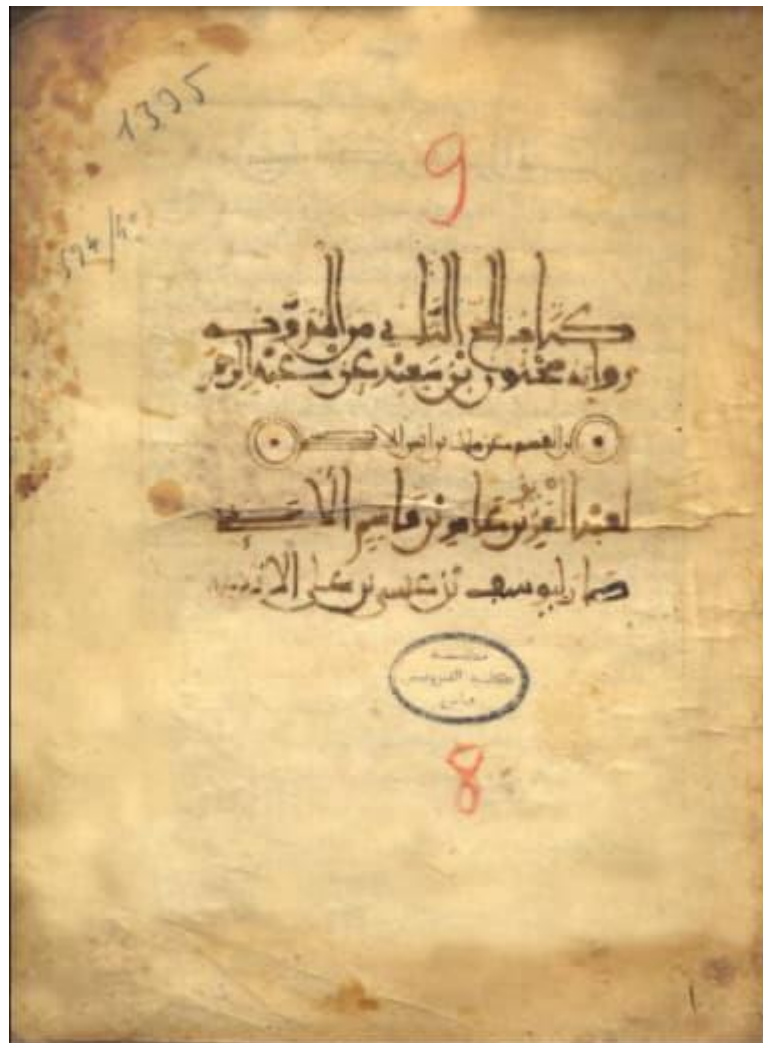 1395
594/4°
9
كتاب الحج الثاني من المدونة
رواية سحنون بن سعيد عن عبد الرحمن
بن القسم عن ملك بن أنس الا
لعبد العزيز بن عامر بن قاسم
صار ليوسف بن عيسى بن علي
كلية القرويين
فاس
8